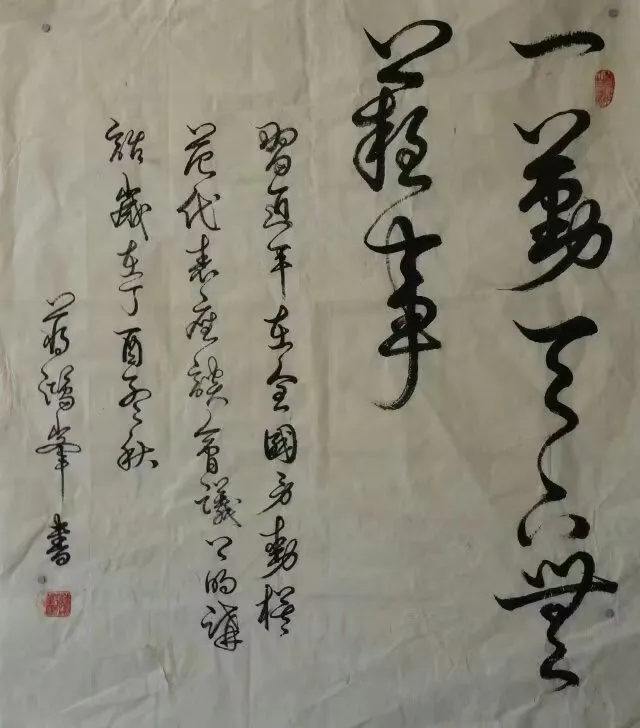 一勤天下無
難事
習近平在全國劳動模
范代表座談會議上的講
話歲在丁酉年秋
蔣鴻峯書